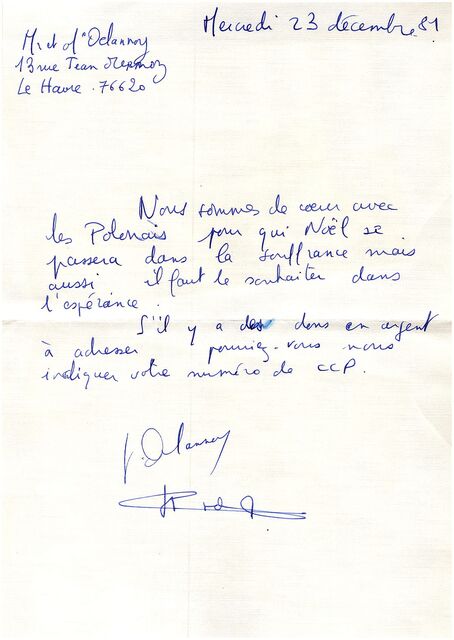 Mercredi 23 décembre 81
Mr et Me Delannoy
13 rue Jean Mermoz
Le Havre . 76620
Nous sommes de cœur avec
les Polonais pour qui Noël se
passera dans la souffrance mais
aussi il faut le souhaiter dans
l'espérance.
S'il y a des dons en argent
à adresser pourriez-vous nous
indiquer votre numéro de CCP.
J. Delannoy